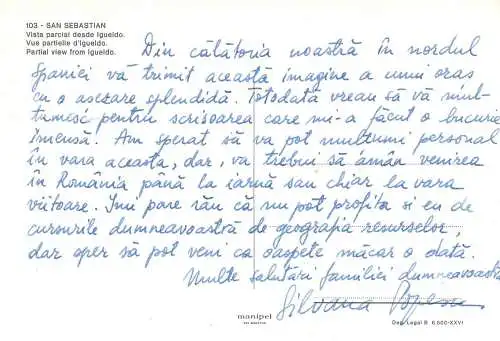 103 - SAN SEBASTIAN
Vista parcial desde Igueldo.
Vue partielle d'Igueldo.
Partial view from Igueldo.
Din călătoria noastră în nordul
Spaniei vă trimit această imagine a unui oraș
cu o așezare splendidă. Totodată vreau să vă mul-
țumesc pentru scrisoarea care mi-a făcut o bucurie
imensă. Am sperat să va pot mulțumi personal
în vara aceasta, dar, va trebui să amân venirea
în România până la iarnă sau chiar la vara
viitoare. Îmi pare rău că nu pot profita și eu de
cursurile dumneavoastră de geografia resurselor,
dar sper să pot veni ca oaspete măcar o dată.
Multe salutări familiei dumneavoastră
Silvana Popescu
manipel
Dep. Legal B. 6.500-XXVI